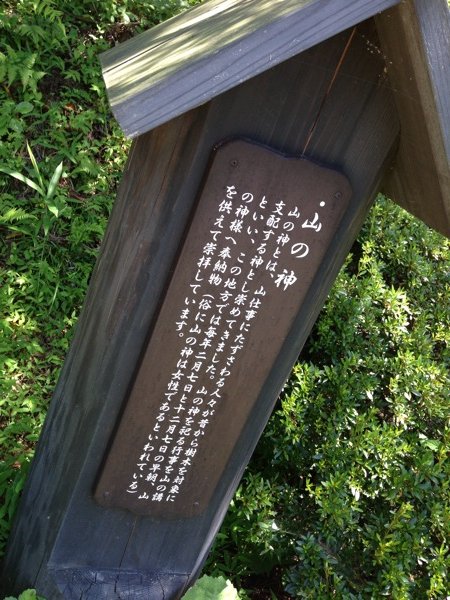 ・山の神
山の神とは、山仕事にたずさわる人々が昔から樹木を対象に
支配する神とし崇めてきました。山の神を祀る行事を山の講
といい、この地方では毎年二月七日と十二月七日の早朝、山
の神様へ奉納物(俗に山の神は女性であるといわれている)
を供えて崇拝しています。